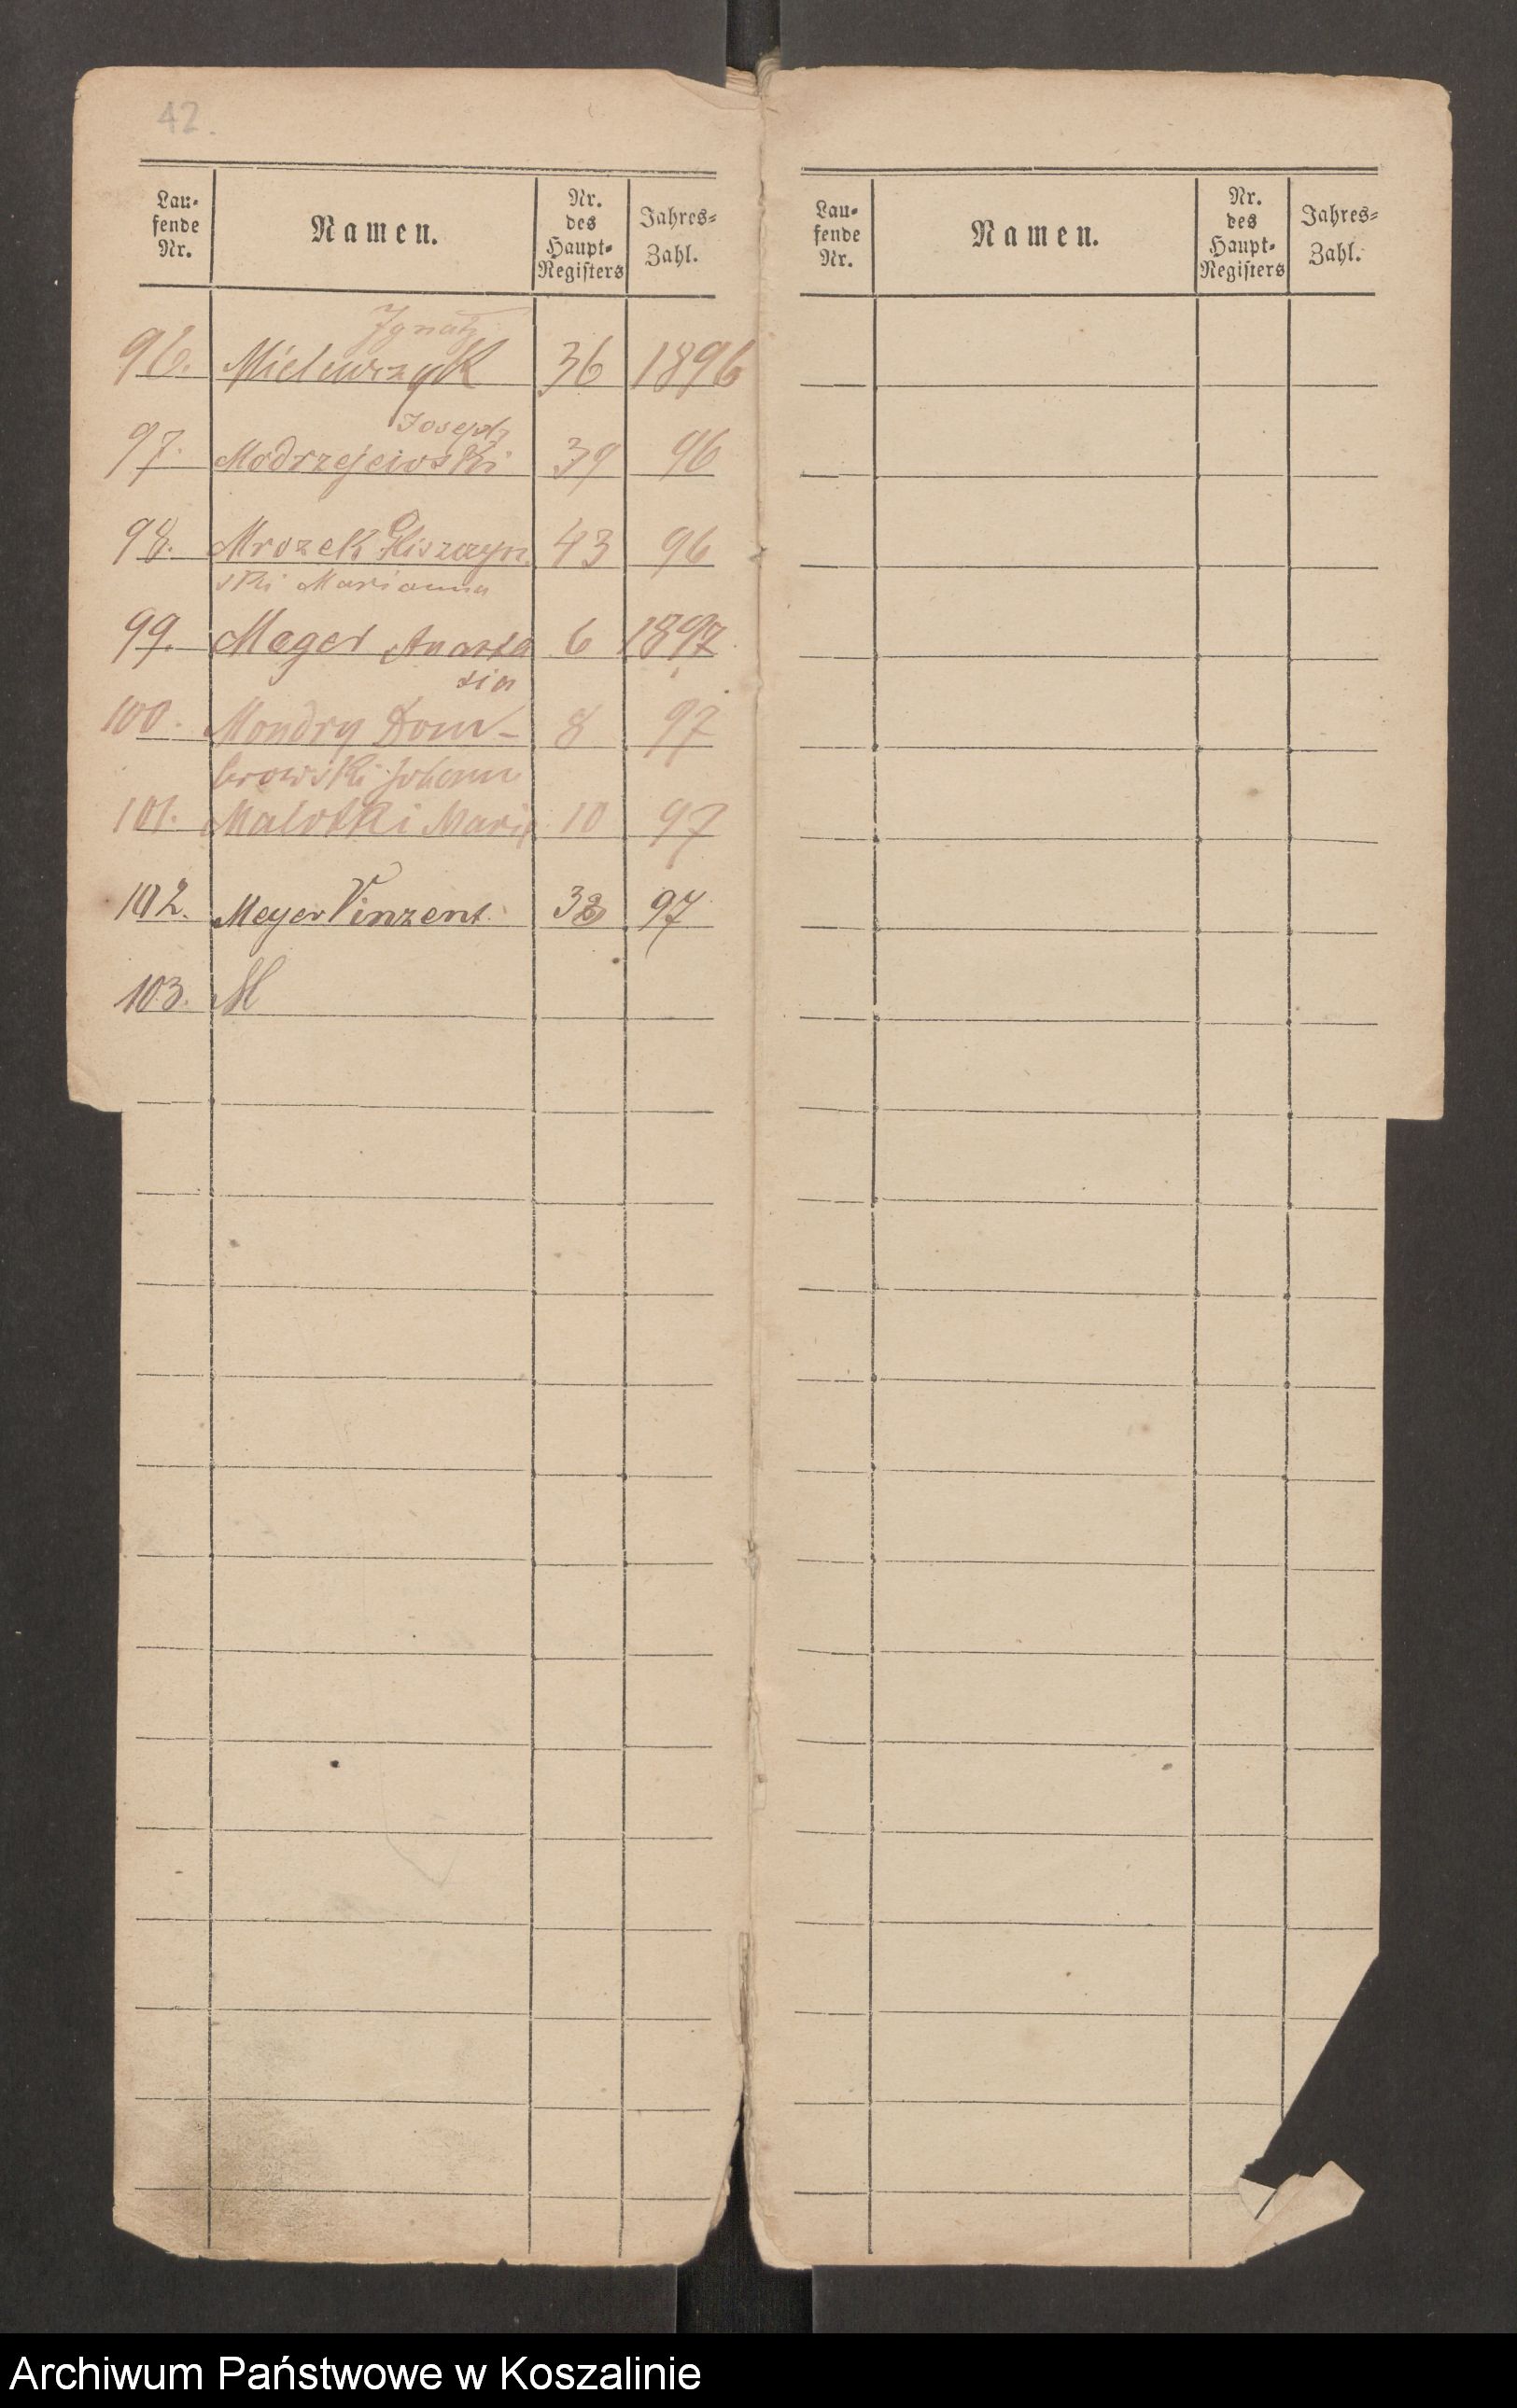 42.
Lau-
fende
Nr.
Namen.
Nr.
des
Haupt-
Registers
Jahres-
Zahl.
Ignatz
96. Mielewczyk 36 1896
Joseph
97. Modrzejewski 39 96
98. Mrozek 43 96
ski Marianna
99. Mager Anasta 6 1897
sia
100. Mondry Dom- 8 97
browski Johann
101. Malotki Marie 10 97
102. Meyer Vinzent 97
103. M
Lau-
fende
Nr.
Namen.
Nr.
des
Haupt-
Registers
Jahres-
Zahl.
Archiwum Państwowe w Koszalinie